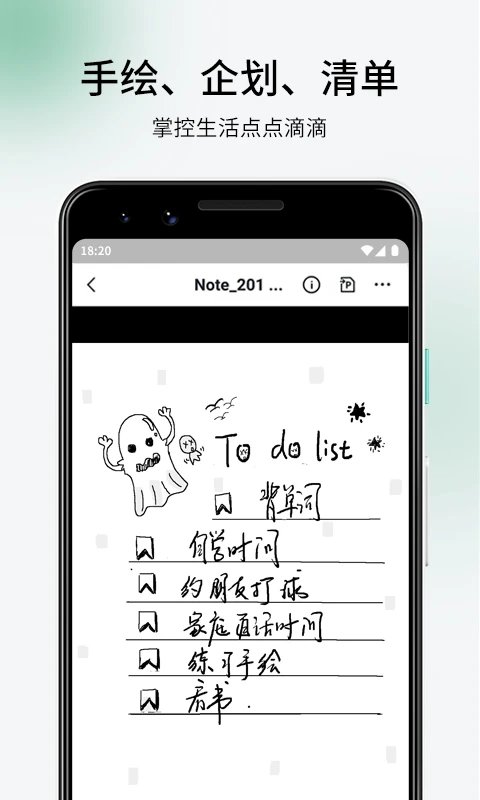 手绘、企划、清单
掌控生活点点滴滴
18:20
Note_201 ...
To do list
背单词
自学时间
约朋友打球
家庭电话时间
练习手绘
看书.